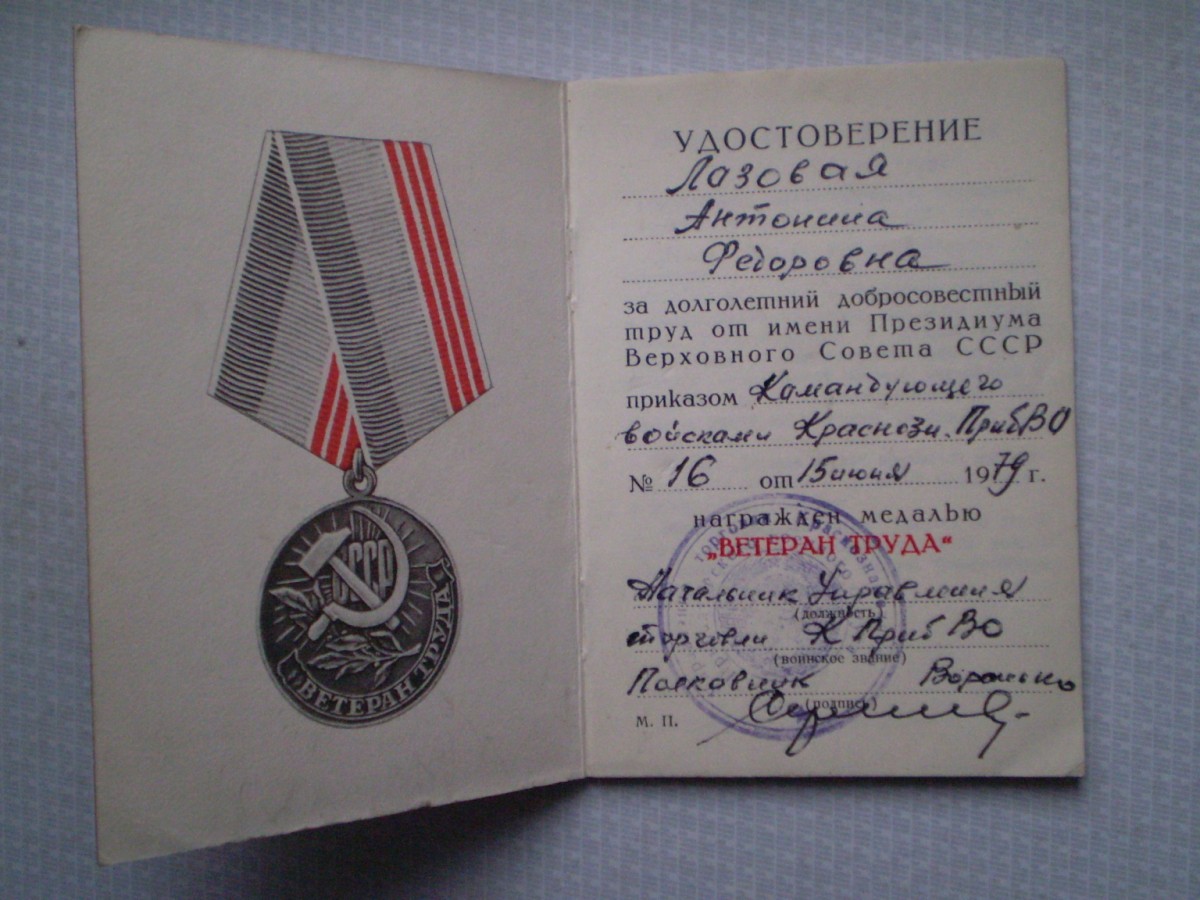 СССР
"ВЕТЕРАН ТРУДА"
УДОСТОВЕРЕНИЕ
Лазовая
Антонина
Федоровна
за долголетний добросовестный
труд от имени Президиума
Верховного Совета СССР
приказом Камандующего
войсками Краснозн. ПрибВО
№ 16 от 15 июня 1979 г.
награжден медалью
„ВЕТЕРАН ТРУДА“
Начальник Управления
(должность)
торговли КПрибВО
(воинское звание)
Полковник
(подпись)
М. П.